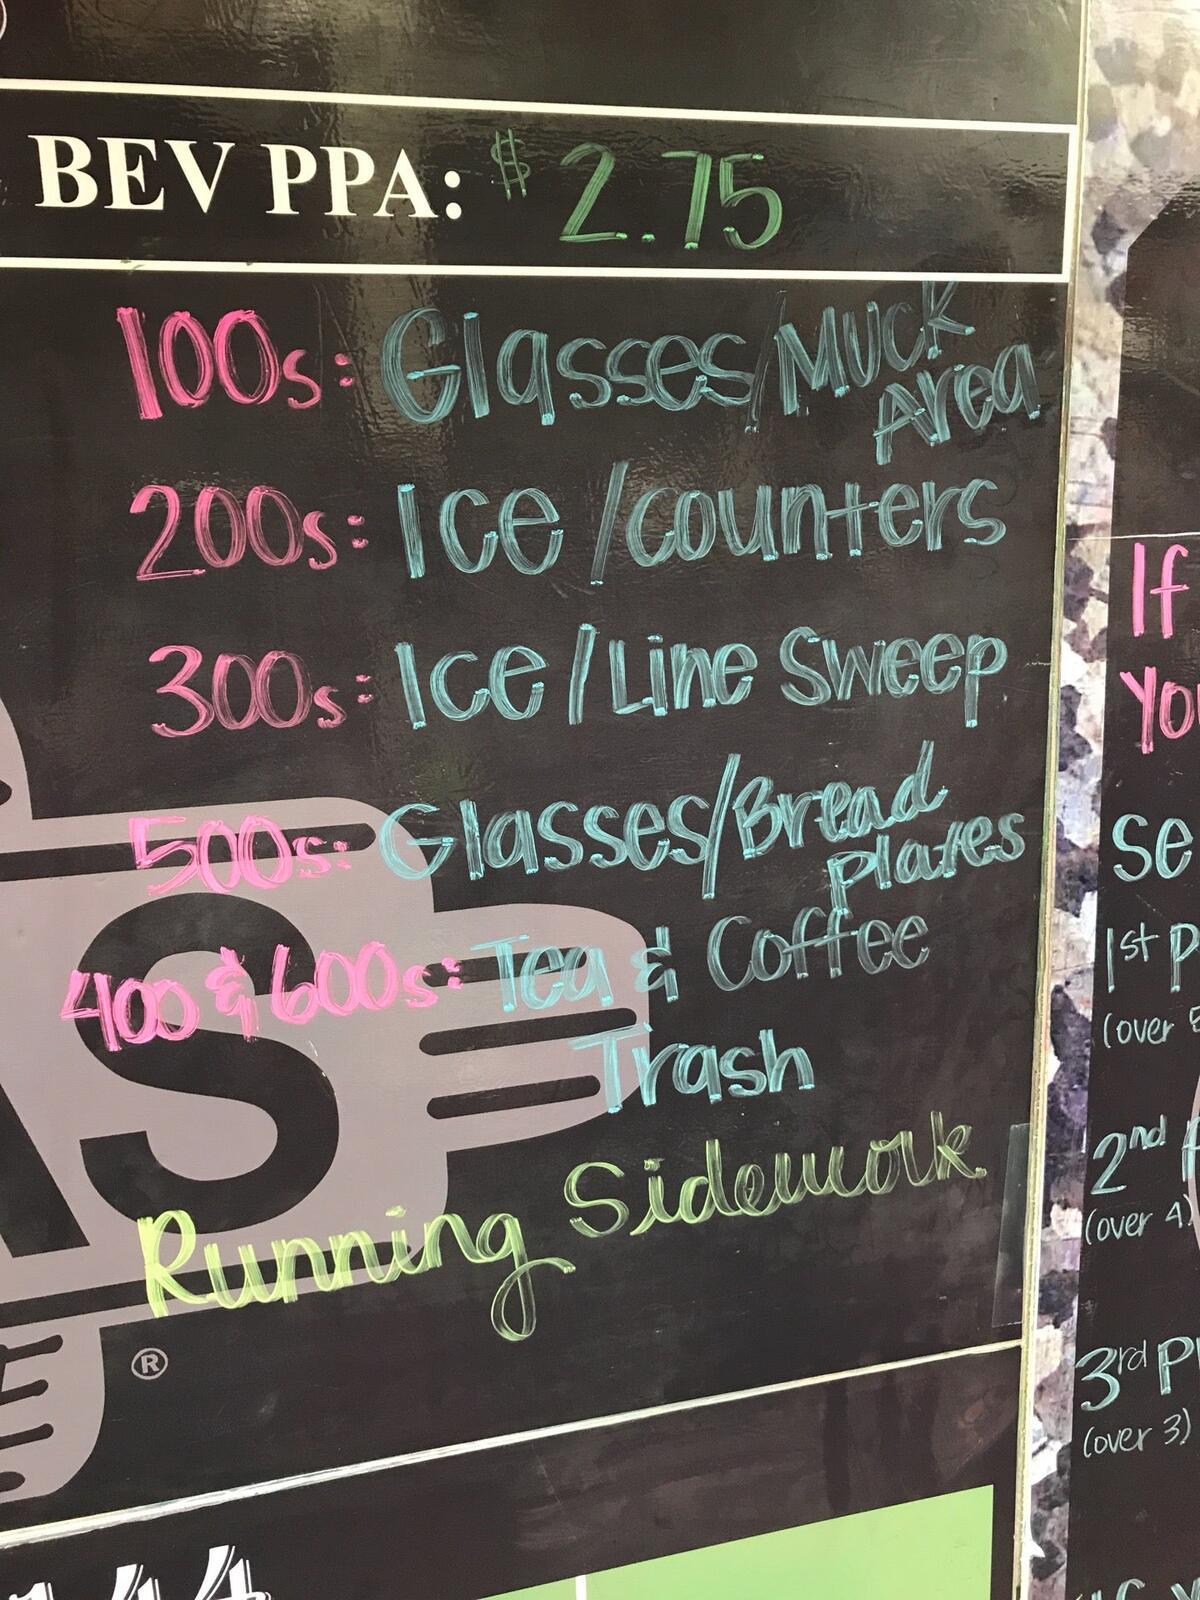 BEV PPA: $2.75
100s: Glasses/Muck
Area
200s: Ice/counters
300s: Ice/Line Sweep
500s: Glasses/Bread
plates
400 & 600s: Tea & Coffee
Trash
Running Sidework
AS
®
If
Se
1st P
(over 5
2nd
(over 4)
3rd Pl
(over 3)